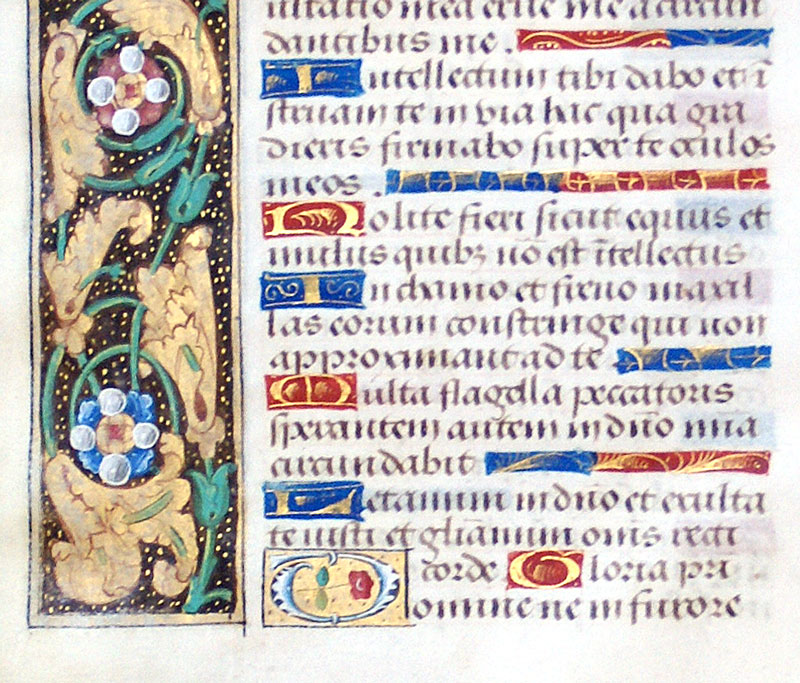 ultatio mea erue me a circun
dantibus me.
Intellectum tibi dabo et ī
struam te in via hac qua gra
dieris firmabo super te oculos
meos.
Nolite fieri sicut equus et
mulus quibꝫ nō est ītellectus
In chamo et freno maxil
las eorum constringe qui non
approximant ad te.
Multa flagella peccatoris
sperantem autem in dn̄o mīa
circundabit
Letamini in dn̄o et exulta
te iusti et gliāmini om̄s recti
corde. Gloria pri
Domine ne in furore